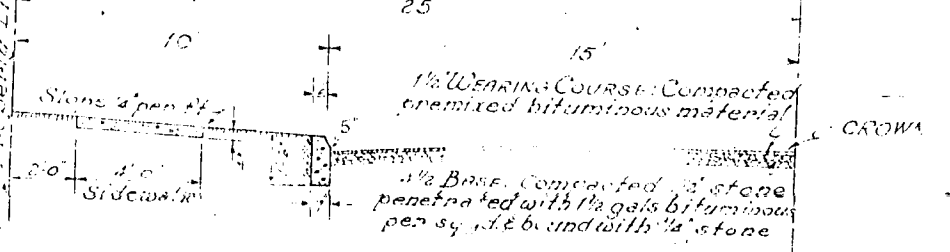 25
10'
15'
1½" WEARING COURSE: Compacted
premixed bituminous material
Slope ¼" per ft.
5"
CROWN
2'0"
4'0"
Sidewalk
BASE. Compacted stone
penetrated with 1½ gals bituminous
per sq. yd. & bound with ¼" stone